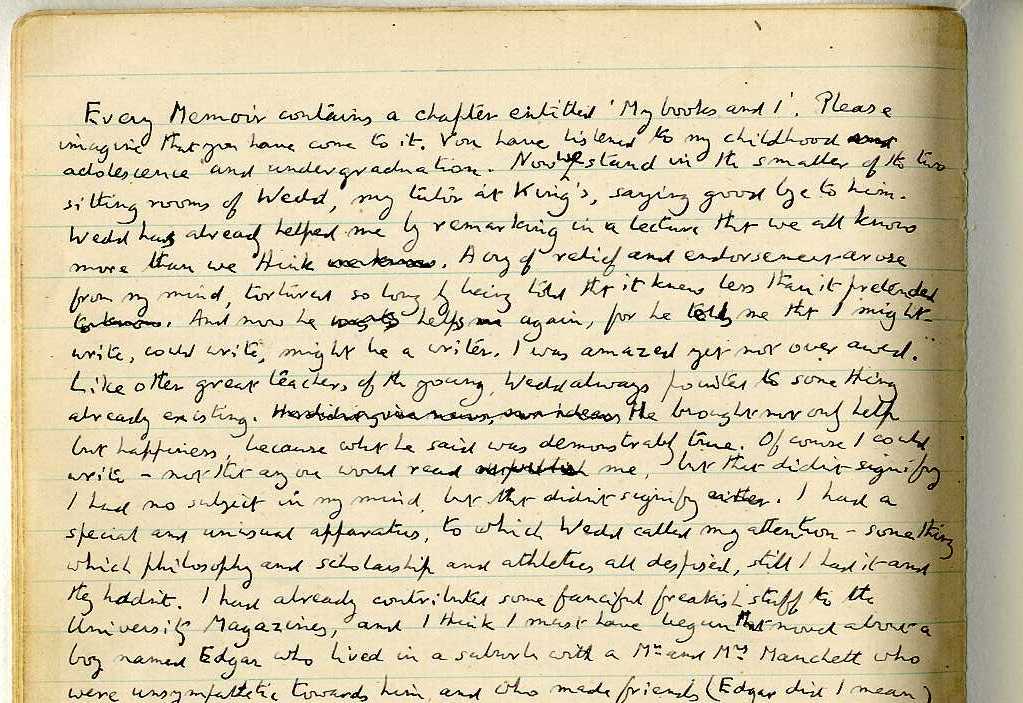 Every Memoir contains a chapter entitled 'My books and I'. Please
imagine that you have come to it. You have listened to my childhood and
adolescence and undergraduation. Now we stand in the smaller of the two
sitting rooms of Wedd, my tutor at King's, saying good bye to him.
Wedd has already helped me by remarking in a lecture that we all know
more than we think we know. A cry of relief and endorsement arose
from my mind, tortured so long by being told that it knew less than it pretended
to know. And now he helps me again, for he tells me that I might
write, could write, might be a writer. I was amazed yet not over awed.
Like other great teachers of the young, Wedd always pointed to something
already existing. He brought not only help
but happiness, because what he said was demonstrably true. Of course I could
write – not that any one would read me, but that didn't signify
I had no subject in my mind, but that didn't signify either. I had a
special and unusual apparatus, to which Wedd called my attention – something
which philosophy and scholarship and athletics all despised, still I had it and
they hadn't. I had already contributed some fanciful freakish stuff to the
University Magazines, and I think I must have begun that novel about a
boy named Edgar who lived in a suburb with a Mr and Mrs Manchett who
were unsympathetic towards him, and who made friends (Edgar did I mean)